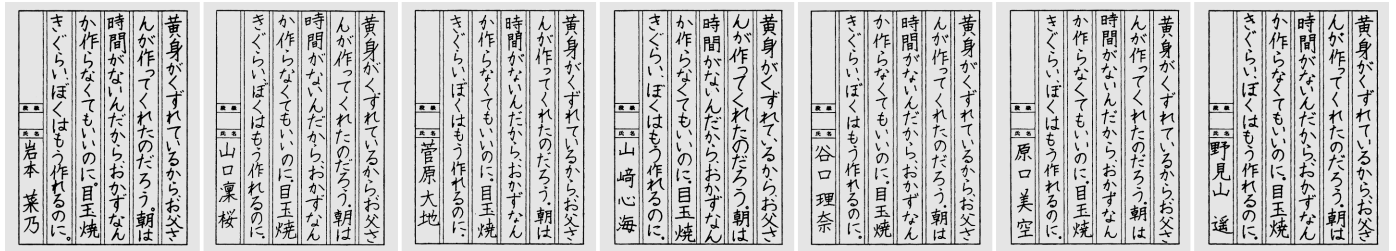 黄身がくずれているから、お父さ
んが作ってくれたのだろう。朝は
時間がないんだから、おかずなん
か作らなくてもいいのに。目玉焼
きぐらい、ぼくはもう作れるのに。
段級
氏名 岩本 菜乃
黄身がくずれているから、お父さ
んが作ってくれたのだろう。朝は
時間がないんだから、おかずなん
か作らなくてもいいのに。目玉焼
きぐらい、ぼくはもう作れるのに。
段級
氏名 山口凜桜
黄身がくずれているから、お父さ
んが作ってくれたのだろう。朝は
時間がないんだから、おかずなん
か作らなくてもいいのに。目玉焼
きぐらい、ぼくはもう作れるのに。
段級
氏名 菅原大地
黄身がくずれているから、お父さ
んが作ってくれたのだろう。朝は
時間がないんだから、おかずなん
か作らなくてもいいのに。目玉焼
きぐらい、ぼくはもう作れるのに。
段級
氏名 山﨑心海
黄身がくずれているから、お父さ
んが作ってくれたのだろう。朝は
時間がないんだから、おかずなん
か作らなくてもいいのに。目玉焼
きぐらい、ぼくはもう作れるのに。
段級
氏名 谷口理奈
黄身がくずれているから、お父さ
んが作ってくれたのだろう。朝は
時間がないんだから、おかずなん
か作らなくてもいいのに。目玉焼
きぐらい、ぼくはもう作れるのに。
段級
氏名 原口美空
黄身がくずれているから、お父さ
んが作ってくれたのだろう。朝は
時間がないんだから、おかずなん
か作らなくてもいいのに。目玉焼
きぐらい、ぼくはもう作れるのに。
段級
氏名 野見山 遥